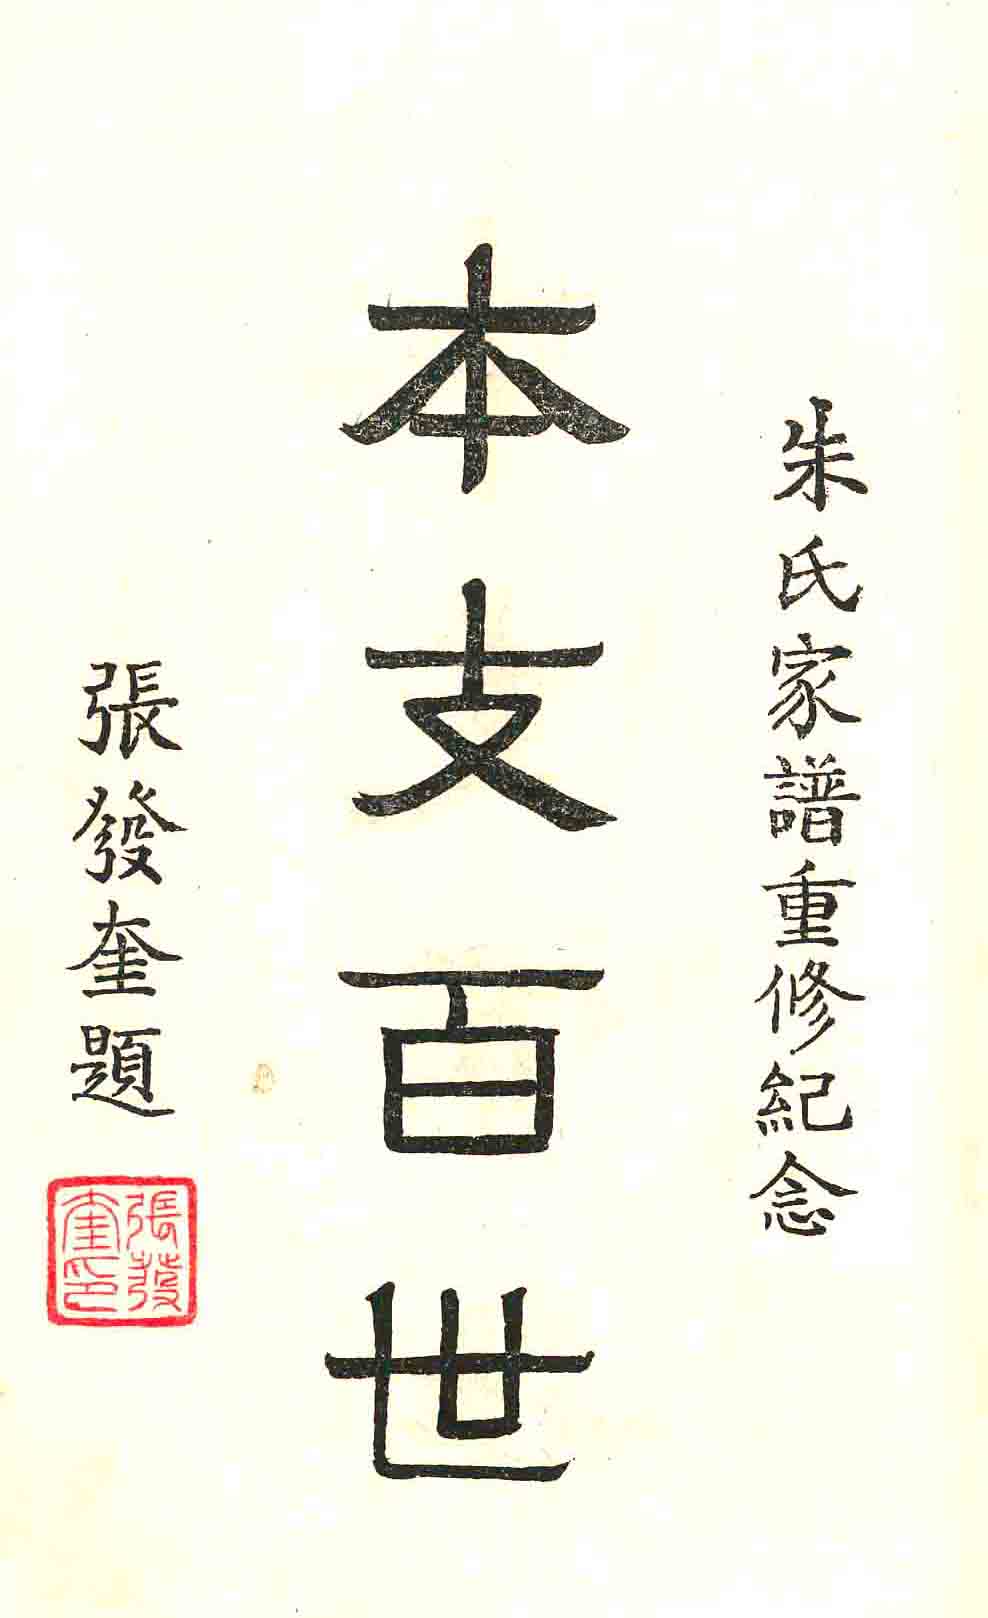 朱氏家譜重修紀念
本支百世
張發奎題
張發
奎印